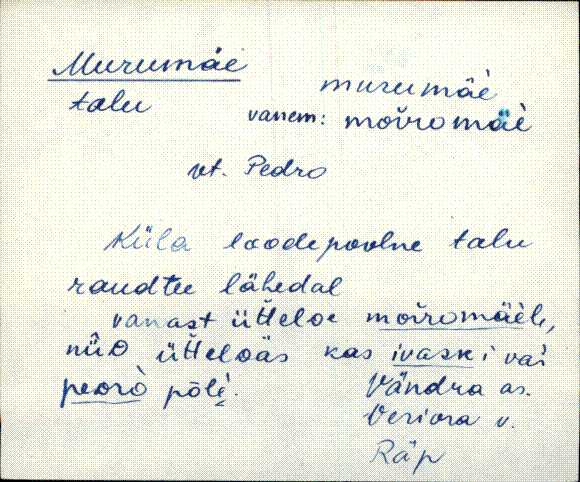 Murumäe murumäè
talu vanem: moŭromäè
vt. Pedro
Küla loodepoolne talu
raudtee lähedal
vanast üťteloe moŭromäele,
nüo üťteloäs kas ivaski vai
peorò põlé.
Vändra as.
Veriora v.
Räp